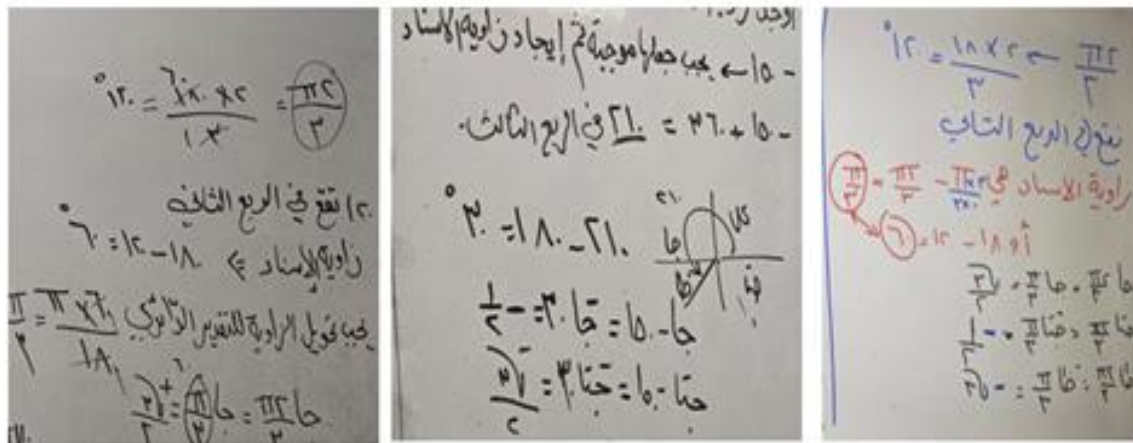 π٢/٣ = ٢ × ١٨٠/٣ = ١٢٠°
(٢ تقع في الربع الثاني
زاوية الإسناد ⇐ ١٨٠ - ١٢٠ = ٦٠°
يجب تحويل الزاوية للتقدير الدائري ٦٠ × π/١٨٠ = π/٣
جا π٢/٣ = جا π/٣ = +√٣/٢
أوجد
- ١٥٠ ← يجب جعلها موجبة ثم إيجاد زاوية الإسناد
- ١٥٠ + ٣٦٠ = ٢١٠ في الربع الثالث.
٢١٠ - ١٨٠ = ٣٠°
٢١٠
كل
جا
جتا
جا - ١٥٠ = جا ٣٠ = - ١/٢
جتا - ١٥٠ = جتا ٣٠ = -√٣/٢
π٢/٣ ← ٢ × ١٨٠/٣ = ١٢٠°
تقع في الربع الثاني
زاوية الاسناد هي π٣/٣ - π٢/٣ = π/٣
أو ١٨٠ - ١٢٠ = ٦٠
جا π٢/٣ = جا π/٣ = √٣/٢
جتا π٢/٣ = جتا π/٣ = - ١/٢
ظا π٢/٣ = ظا π/٣ = -√٣